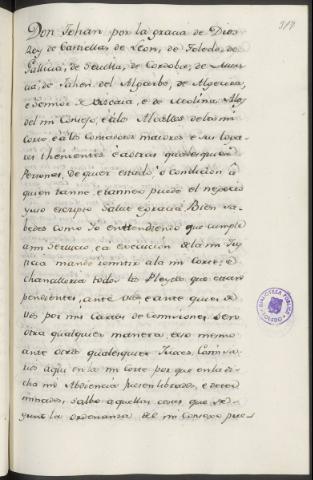 319
Don Jehan por la gracia de Dios
Rey de Castiella, de Leon, de Toledo, de
Gallicia, de Sevilla, de Cordoba, de Mur
cia, de Jahen del Algarbe, de Algecira,
e Sennor de Viscaia, e de Molina. Alos
del mi Consejo, e alos Alcalles dela mi
Corte e alos Contadores maiores e sus logar
res thenientes e a otras qualesquier
Personas, de quier estado, o condicion a
quien tanne, e tanner puede el negocio
yuso escripto Salut e gracia. Bien sa-
bedes como Yo entendiendo que cumple
a mi Servicio, e a execucion dela mi Jus
ticia mande remitir a la mi Corte, e
Chancilleria todos los Pleytos que eran
pendientes, ante vos, e ante quier de
vos por mis Cartas de Comisiones, o en
otra qualquier manera, e eso mesmo
ante otros qualesquier Jueces, Comisa-
rios aqui en la mi Corte por que en la di-
cha mi Abdiencia fuesen librados, e deter
minados, salbo aquellas cosas que se-
gunt la ordenanza del mi Consejo pue-
BIBLIOTECA PUBLICA
TOLEDO